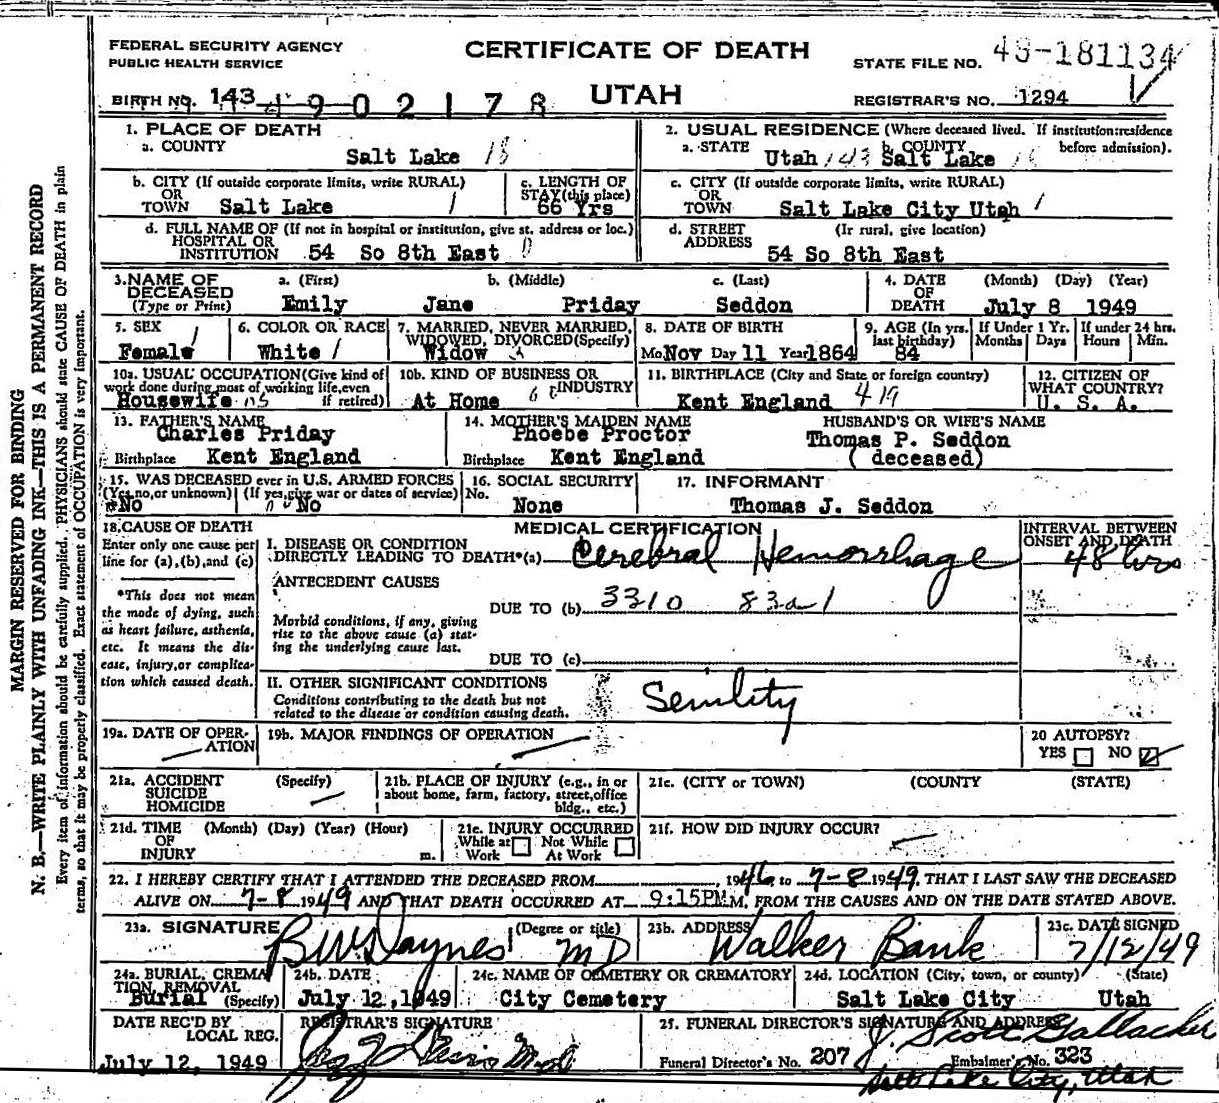 FEDERAL SECURITY AGENCY
PUBLIC HEALTH SERVICE
CERTIFICATE OF DEATH
UTAH
STATE FILE NO. 49-181134
REGISTRAR'S NO. 1294
BIRTH NO. 143 4902178
1. PLACE OF DEATH
a. COUNTY
Salt Lake 18
2. USUAL RESIDENCE (Where deceased lived. If institution:residence before admission).
a. STATE Utah 143 b. COUNTY Salt Lake
b. CITY (If outside corporate limits, write RURAL)
OR
TOWN Salt Lake 1
c. LENGTH OF
STAY(this place)
66 Yrs
c. CITY (If outside corporate limits, write RURAL)
OR
TOWN Salt Lake City Utah 1
d. FULL NAME OF (If not in hospital or institution, give st. address or loc.)
HOSPITAL OR
INSTITUTION 54 So 8th East
d. STREET (Ir rural, give location)
ADDRESS
54 So 8th East
3.NAME OF
DECEASED
(Type or Print)
a. (First) b. (Middle) c. (Last)
Emily Jane Priday Seddon
4. DATE (Month) (Day) (Year)
OF
DEATH July 8 1949
5. SEX
Female 1
6. COLOR OR RACE
White 1
7. MARRIED, NEVER MARRIED,
WIDOWED, DIVORCED(Specify)
Widow
8. DATE OF BIRTH
Mo Nov Day 11 Year 1864
9. AGE (In yrs.
last birthday)
84
If Under 1 Yr.
Months Days
If under 24 hrs.
Hours Min.
10a. USUAL OCCUPATION(Give kind of
work done during most of working life,even
if retired)
Housewife
10b. KIND OF BUSINESS OR
INDUSTRY
At Home
11. BIRTHPLACE (City and State or foreign country)
Kent England 419
12. CITIZEN OF
WHAT COUNTRY?
U. S. A.
13. FATHER'S NAME
Charles Priday
Birthplace Kent England
14. MOTHER'S MAIDEN NAME
Phoebe Proctor
Birthplace Kent England
HUSBAND'S OR WIFE'S NAME
Thomas P. Seddon
( deceased)
15. WAS DECEASED ever in U.S. ARMED FORCES
(Yes,no,or unknown) (If yes,give war or dates of service)
No No
16. SOCIAL SECURITY
No.
None
17. INFORMANT
Thomas J. Seddon
18.CAUSE OF DEATH
Enter only one cause per
line for (a),(b),and (c)
*This does not mean
the mode of dying, such
as heart failure, asthenia,
etc. It means the dis-
ease, injury,or complica-
tion which caused death.
MEDICAL CERTIFICATION
I. DISEASE OR CONDITION
DIRECTLY LEADING TO DEATH*(a) Cerebral Hemorrhage
INTERVAL BETWEEN
ONSET AND DEATH
48 hrs
ANTECEDENT CAUSES
DUE TO (b) 3310 83a1
Morbid conditions, if any, giving
rise to the above cause (a) stat-
ing the underlying cause last.
DUE TO (c)
II. OTHER SIGNIFICANT CONDITIONS
Conditions contributing to the death but not
related to the disease or condition causing death.
Senility
19a. DATE OF OPER-
ATION
19b. MAJOR FINDINGS OF OPERATION
20 AUTOPSY?
YES NO
21a. ACCIDENT (Specify)
SUICIDE
HOMICIDE
21b. PLACE OF INJURY (e.g., in or
about home, farm, factory, street,office
bldg., etc.)
21c. (CITY or TOWN) (COUNTY) (STATE)
21d. TIME (Month) (Day) (Year) (Hour)
OF
INJURY m.
21e. INJURY OCCURRED
While at Not While
Work At Work
21f. HOW DID INJURY OCCUR?
22. I HEREBY CERTIFY THAT I ATTENDED THE DECEASED FROM , 1946 to 7-8 1949, THAT I LAST SAW THE DECEASED
ALIVE ON 7-8 1949 AND THAT DEATH OCCURRED AT 9:15PM M, FROM THE CAUSES AND ON THE DATE STATED ABOVE.
23a. SIGNATURE (Degree or title)
MD
23b. ADDRESS
Walker Bank
23c. DATE SIGNED
7/12/49
24a. BURIAL, CREMA
TION, REMOVAL
Burial (Specify)
24b. DATE
July 12, 1949
24c. NAME OF CEMETERY OR CREMATORY
City Cemetery
24d. LOCATION (City, town, or county) (State)
Salt Lake City Utah
DATE REC'D BY
LOCAL REG.
July 12, 1949
REGISTRAR'S SIGNATURE
25. FUNERAL DIRECTOR'S SIGNATURE AND ADDRESS
J. Scott Gallacher
Funeral Director's No. 207 Embalmer's No. 323
Salt Lake City, Utah
MARGIN RESERVED FOR BINDING
N. B.—WRITE PLAINLY WITH UNFADING INK—THIS IS A PERMANENT RECORD
Every item of information should be carefully supplied. PHYSICIANS should state CAUSE OF DEATH in plain
terms, so that it may be properly classified. Exact statement of OCCUPATION is very important.